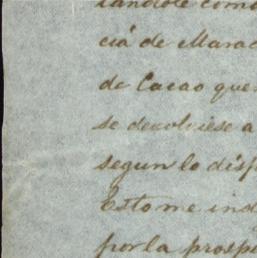 ciá de Marac
de Cacao que
se devolviese a
segun lo disp
Esto me ind
por la prospe